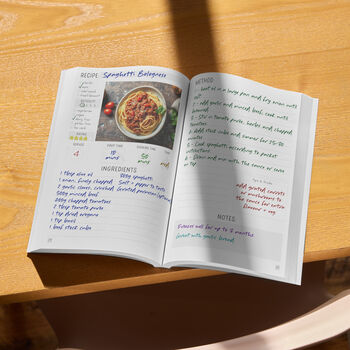 RECIPE: Spaghetti Bolognese
SERVING
4
PREP TIME
10
mins
COOKING TIME
50
mins
INGREDIENTS
1 tbsp olive oil
1 onion, finely chopped
2 garlic cloves, crushed
500g minced beef
400g chopped tomatoes
2 tbsp tomato purée
1 tsp dried oregano
1 tsp basil
1 beef stock cube
300g spaghetti
Salt + pepper to taste
Grated parmesan
METHOD
1 - heat oil in a large pan and fry onion until
soft
2 - add garlic and minced beef, cook until
browned
3 - Stir in tomato purée, herbs and chopped
tomatoes
4 - Add stock cube and simmer for 25-30
5 - Cook spaghetti according to packet
instructions
6 - Drain and mix with the sauce or serve
on top
add grated carrots
or mushrooms to
the sauce for extra
flavour + veg
NOTES
Freezes well for up to 3 months
Great with garlic bread